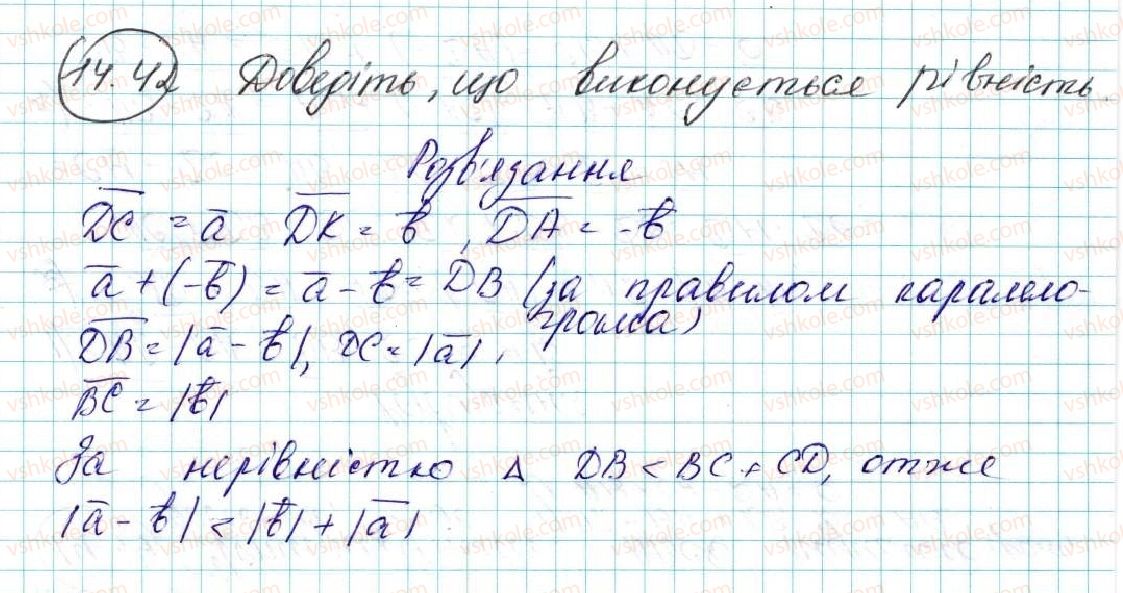 14.42 Доведіть, що виконується рівність.
Розв'язання
D̅C̅ = a̅ D̅K̅ = b̅, D̅A̅ = -b̅
a̅ + (-b̅) = a̅ - b̅ = DB (за правилом парало-
грама)
D̅B̅ = |a̅ - b̅|, DC = |a̅|,
B̅C̅ = |b̅|
За нерівністю Δ DB < BC + CD, отже
|a̅ - b̅| < |b̅| + |a̅|